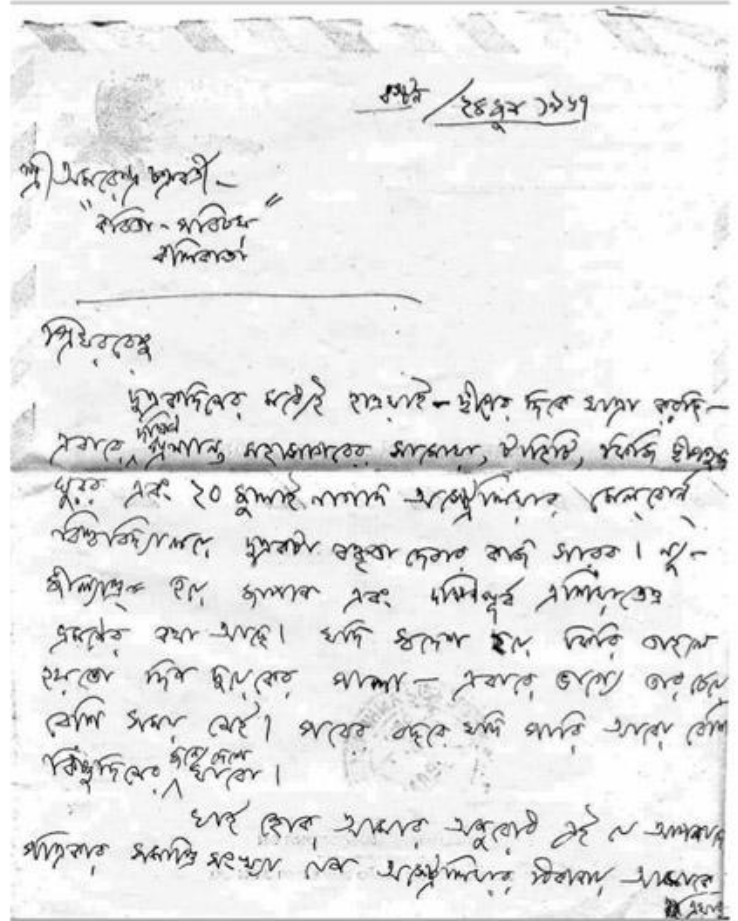 বস্টন / ২৪ জুন ১৯৬৭
শ্রী অমরেন্দ্র চক্রবর্তী —
"কবিতা - পরিচয়"
কলিকাতা
প্রিয়বরেষু
দুএকদিনের মধ্যেই হাওয়াই - দ্বীপের দিকে যাত্রা করছি —
এবারে দক্ষিণ প্রশান্ত মহাসাগরের সামোয়া, টাহিটি, ফিজি দ্বীপপুঞ্জ
ঘুরব এবং ২০ জুলাই নাগাদ অস্ট্রেলিয়ার মেলবোর্ন
বিশ্ববিদ্যালয়ে দুএকটা বক্তৃতা দেবার কাজ সারব। ন্যু -
জীল্যাণ্ড হয়ে জাপান এবং দক্ষিণপূর্ব এশিয়াতেও
ভ্রমণের কথা আছে। যদি স্বদেশ হয়ে ফিরি তাহলে
হয়তো দিন দুয়েকের পালা — এবারে ভাগ্যে তার চেয়ে
বেশি সময় নেই। পরের বছরে যদি পারি আরো বেশি
কিছুদিনের জন্যে দেশে যাবো।
যাই হোক আমার অনুরোধ এই যে আপনার
পত্রিকার সমাপ্তি সংখ্যা যেন অস্ট্রেলিয়ার ঠিকানায় আমাকে